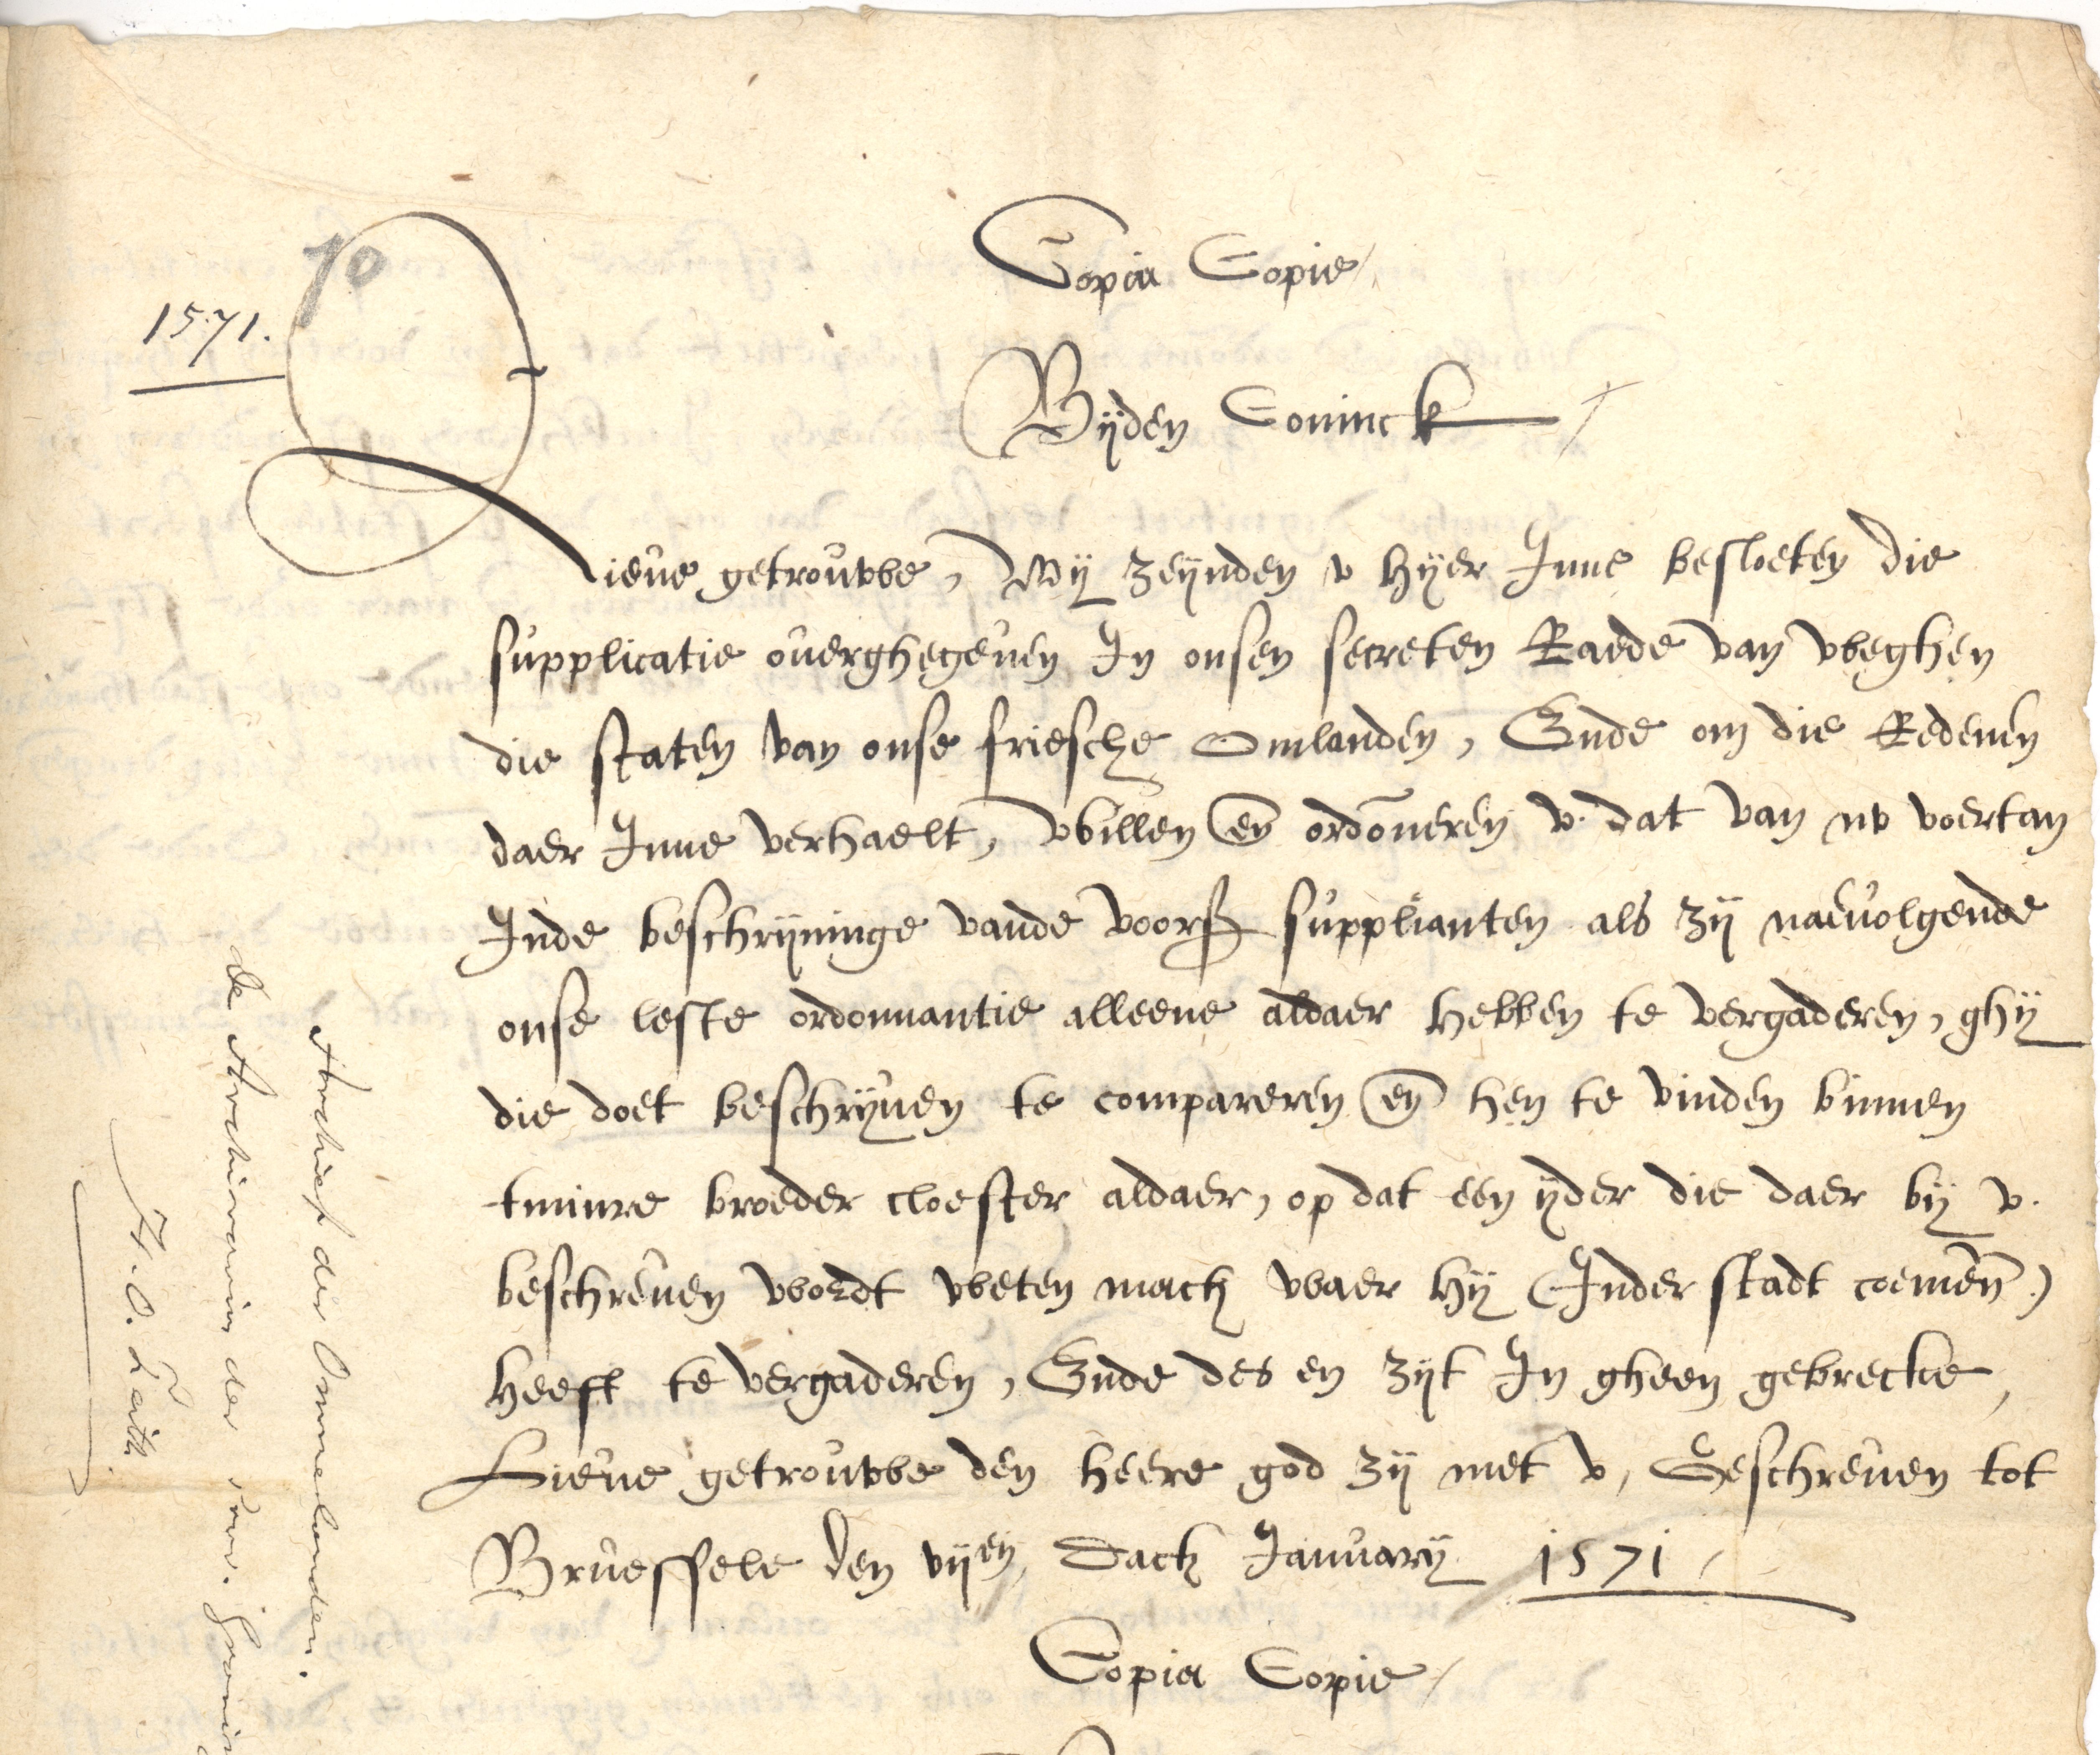 10
1571.
Copia Copie
Bijden Coninck
Lieue getrouwe, Wij zeijnden v hijer Inne besloeten die
supplicatie ouerghegeuen In onsen secreten Raede van weghen
die staten van onse friesche Omlanden, Ende om die Redenen
daer Inne verhaelt, willen en ordoneren v. dat van nv voertan
Inde beschrijninge vande voors supplianten als zij naeuolgende
onse leste ordonnantie alleene aldaer hebben te vergaderen, ghij
die doet beschrijuen te compareren en hen te vinden binnen
tminre broeder cloester aldaer, op dat een ijder die daer bij v.
beschreuen wordt weten mach waer hij (Inder stadt coemen)
heeft te vergaderen, Ende des en zijt In gheen gebrecke,
Lieue getrouwe den heere god zij met v, Geschreuen tot
Bruessele den vijen dach January 1571
Copia Copie
Archief der Ommelanden.
de Archivarius der Prov.
H. O. Feith